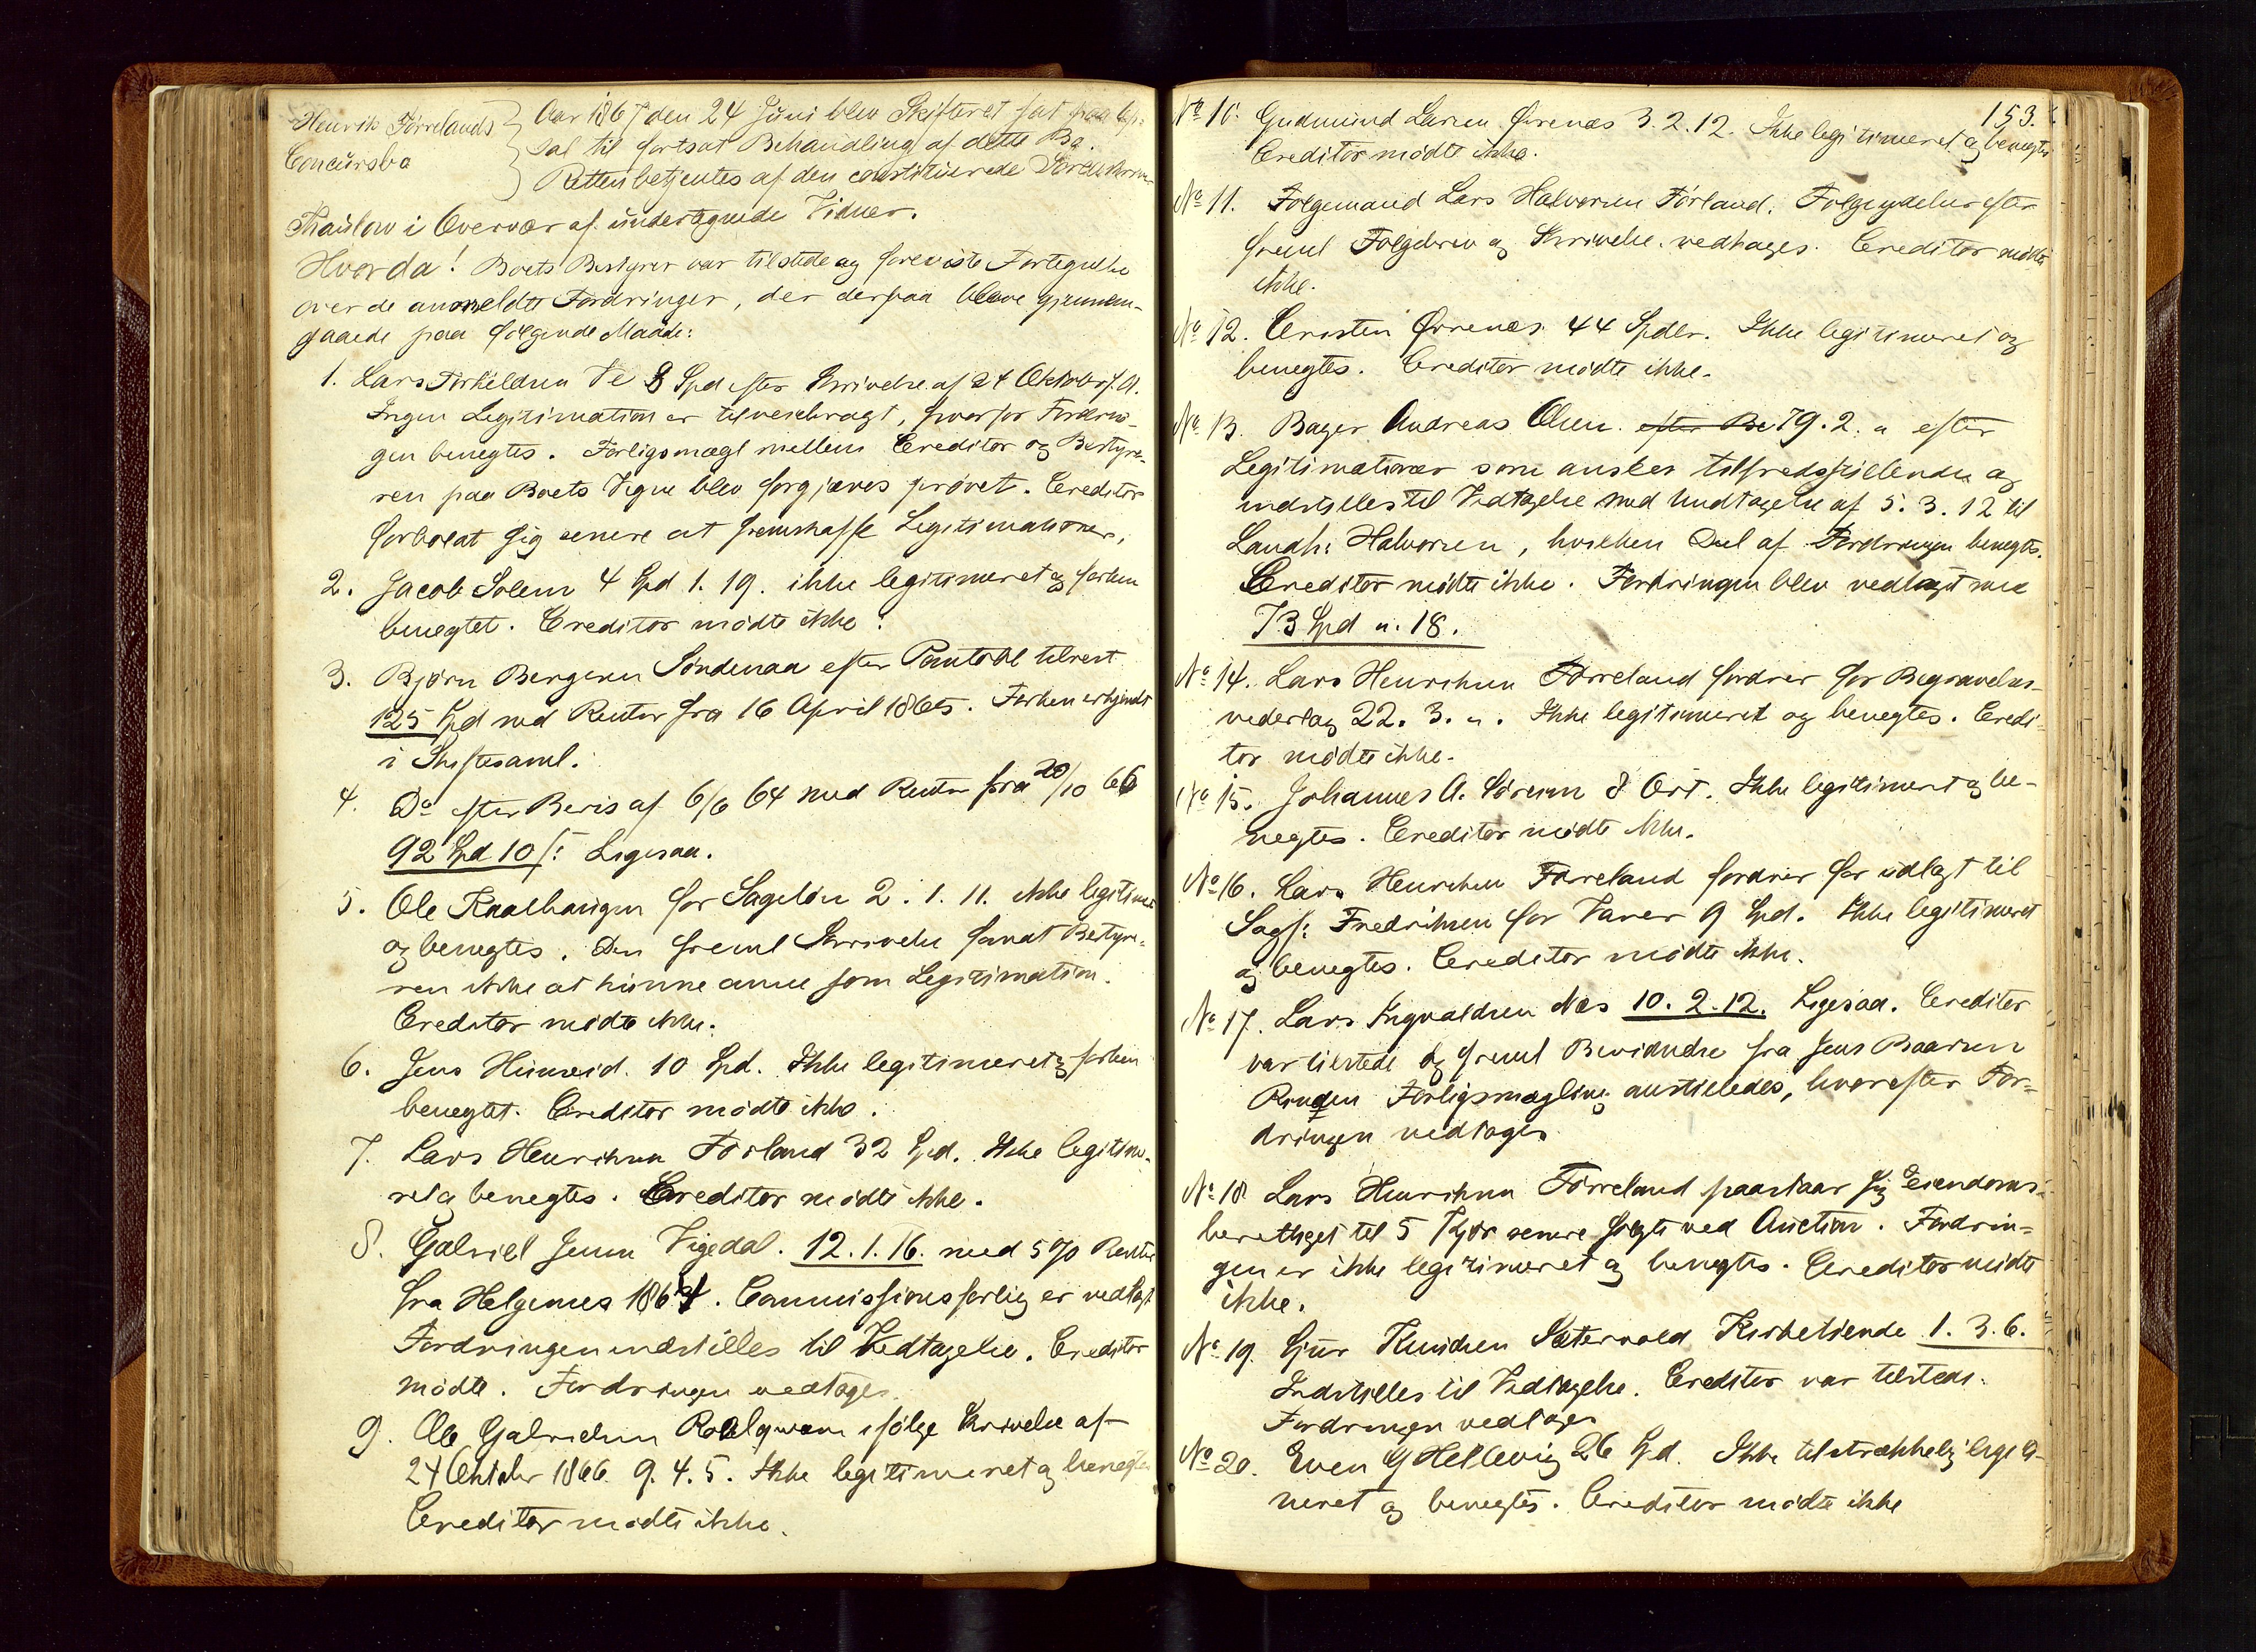 Henrik Förrelands
Concursbo
Aar 1867 den 24 Juni blev Skifteret sat paa
Sal til fortsat Behandling af dette Bo.
Retten betjentes af den constituerede Sorenskriver
Thaulow i Overvær af undertegnede Vidner.
Hvorda! Boets Bestyrer var tilstede og foreviste Fortegnelse
over de anmeldte Fordringer, der derpaa bleve gjennem-
gaaede paa følgende Maade:
1. Lars Torkeldsen Te 8 Spd efter Skrivelse af 24 Oktober f. A.
Ingen Legitimation er tilveiebragt, hvorfor Fordrin-
gen benegtes. Forligsmægl mellem Creditor og Bestyre-
ren paa Boets Vegne blev forgjæves prøvet. Creditor
forbeholdt sig senere at fremskaffe Legitimationer.
2. Jacob Solem 4 Spd 1. 19. ikke legitimeret og forhen
benegtet. Creditor mødte ikke.
3. Bjørn Bergesen Søndenaa efter Pantobl tilrest
125 Spd med Renter fra 16 April 1865. Forhen erkjendt
i Skiftesaml.
4. Do efter Bevis af 6/6 64 med Renter fra 20/10 66
92 Spd 10 ſ: Ligesaa.
5. Ole Kaalhaugen for Sagelön 2. 1. 11. ikke legitime
og benegtes. Den freml Skrivelse fandt Bestyre-
ren ikke at kunne ansee som Legitimation.
Creditor mødte ikke.
6. Jens Himveid. 10 Spd. Ikke legitimeret og forhen
benegtet. Creditor mødte ikke.
7. Lars Henriksen Förland 32 Spd. Ikke legitime-
ret og benegtes. Creditor mødte ikke.
8. Gabriel Jensen Vigedal. 12. 1. 16. med 5 % Rente
fra Helgemes 1864. Commissionsforlig er vedlagt
Fordringen indstilles til Vedtagelse. Creditor
mødte. Fordringen vedtages.
9. Ole Gabrielsen Raalqvam ifølge Skrivelse af
24 Oktober 1866 9. 4. 5. Ikke legitimeret og benegtes
Creditor mødte ikke.
153.
No 10. Gudmund Larsen Ørrenæs 3. 2. 12. Ikke legitimeret og benegtes
Creditor mødte ikke.
No 11. Folgemand Lars Halvorsen Förland. Folgeydelser efter
freml Folgebrev og Skrivelse vedtages. Creditor mødte
ikke.
No 12. Cristen Ørrenæs 44 Spdlr. Ikke legitimeret og
benegtes. Creditor mødte ikke.
No 13. Bager Andreas Olsen efter Be 79. 2. „ efter
Legitimationer som ansees tilfredsstillende og
indstilles til Vedtagelse med Undtagelse af 5. 3. 12 til
Landh: Halvorsen, hvilken Deel af Fordringen benegtes.
Creditor mødte ikke. Fordringen blev vedtaget med
73 Spd „. 18.
No 14. Lars Henriksen Förreland fordrer for Begravelses-
vederlag 22. 3. „. Ikke legitimeret og benegtes. Credi-
tor mødte ikke.
No 15. Johannes A. Søreim 8 Ort. Ikke legitimeret og be-
negtes. Creditor mødte ikke.
No 16. Lars Henriksen Förreland fordrer for udlagt til
Sagf: Fredriksen for Varer 9 Spd. Ikke legitimeret
og benegtes. Creditor mødte ikke.
No 17. Lars Ingvaldsen Næs 10. 2. 12. Ligesaa. Creditor
var tilstede og freml Bevidnelse fra Jens Baarsen
Forligsmægling anstilledes, hvorefter For-
dringen vedtages.
No 18 Lars Henriksen Förreland paastaar sig Eiendoms-
berettiget til 5 Kjør senere solgte ved Auction. Fordrin-
gen er ikke legitimeret og benegtes. Creditor mødte
ikke.
No 19. Sjur Knudsen Sætervold Kirketiende 1. 3. 6.
Indstilles til Vedtagelse. Creditor var tilstede.
Fordringen vedtages
No 20. Even G Hellevig 26 Spd. Ikke tilstrækkelig legiti-
meret og benegtes. Creditor mødte ikke